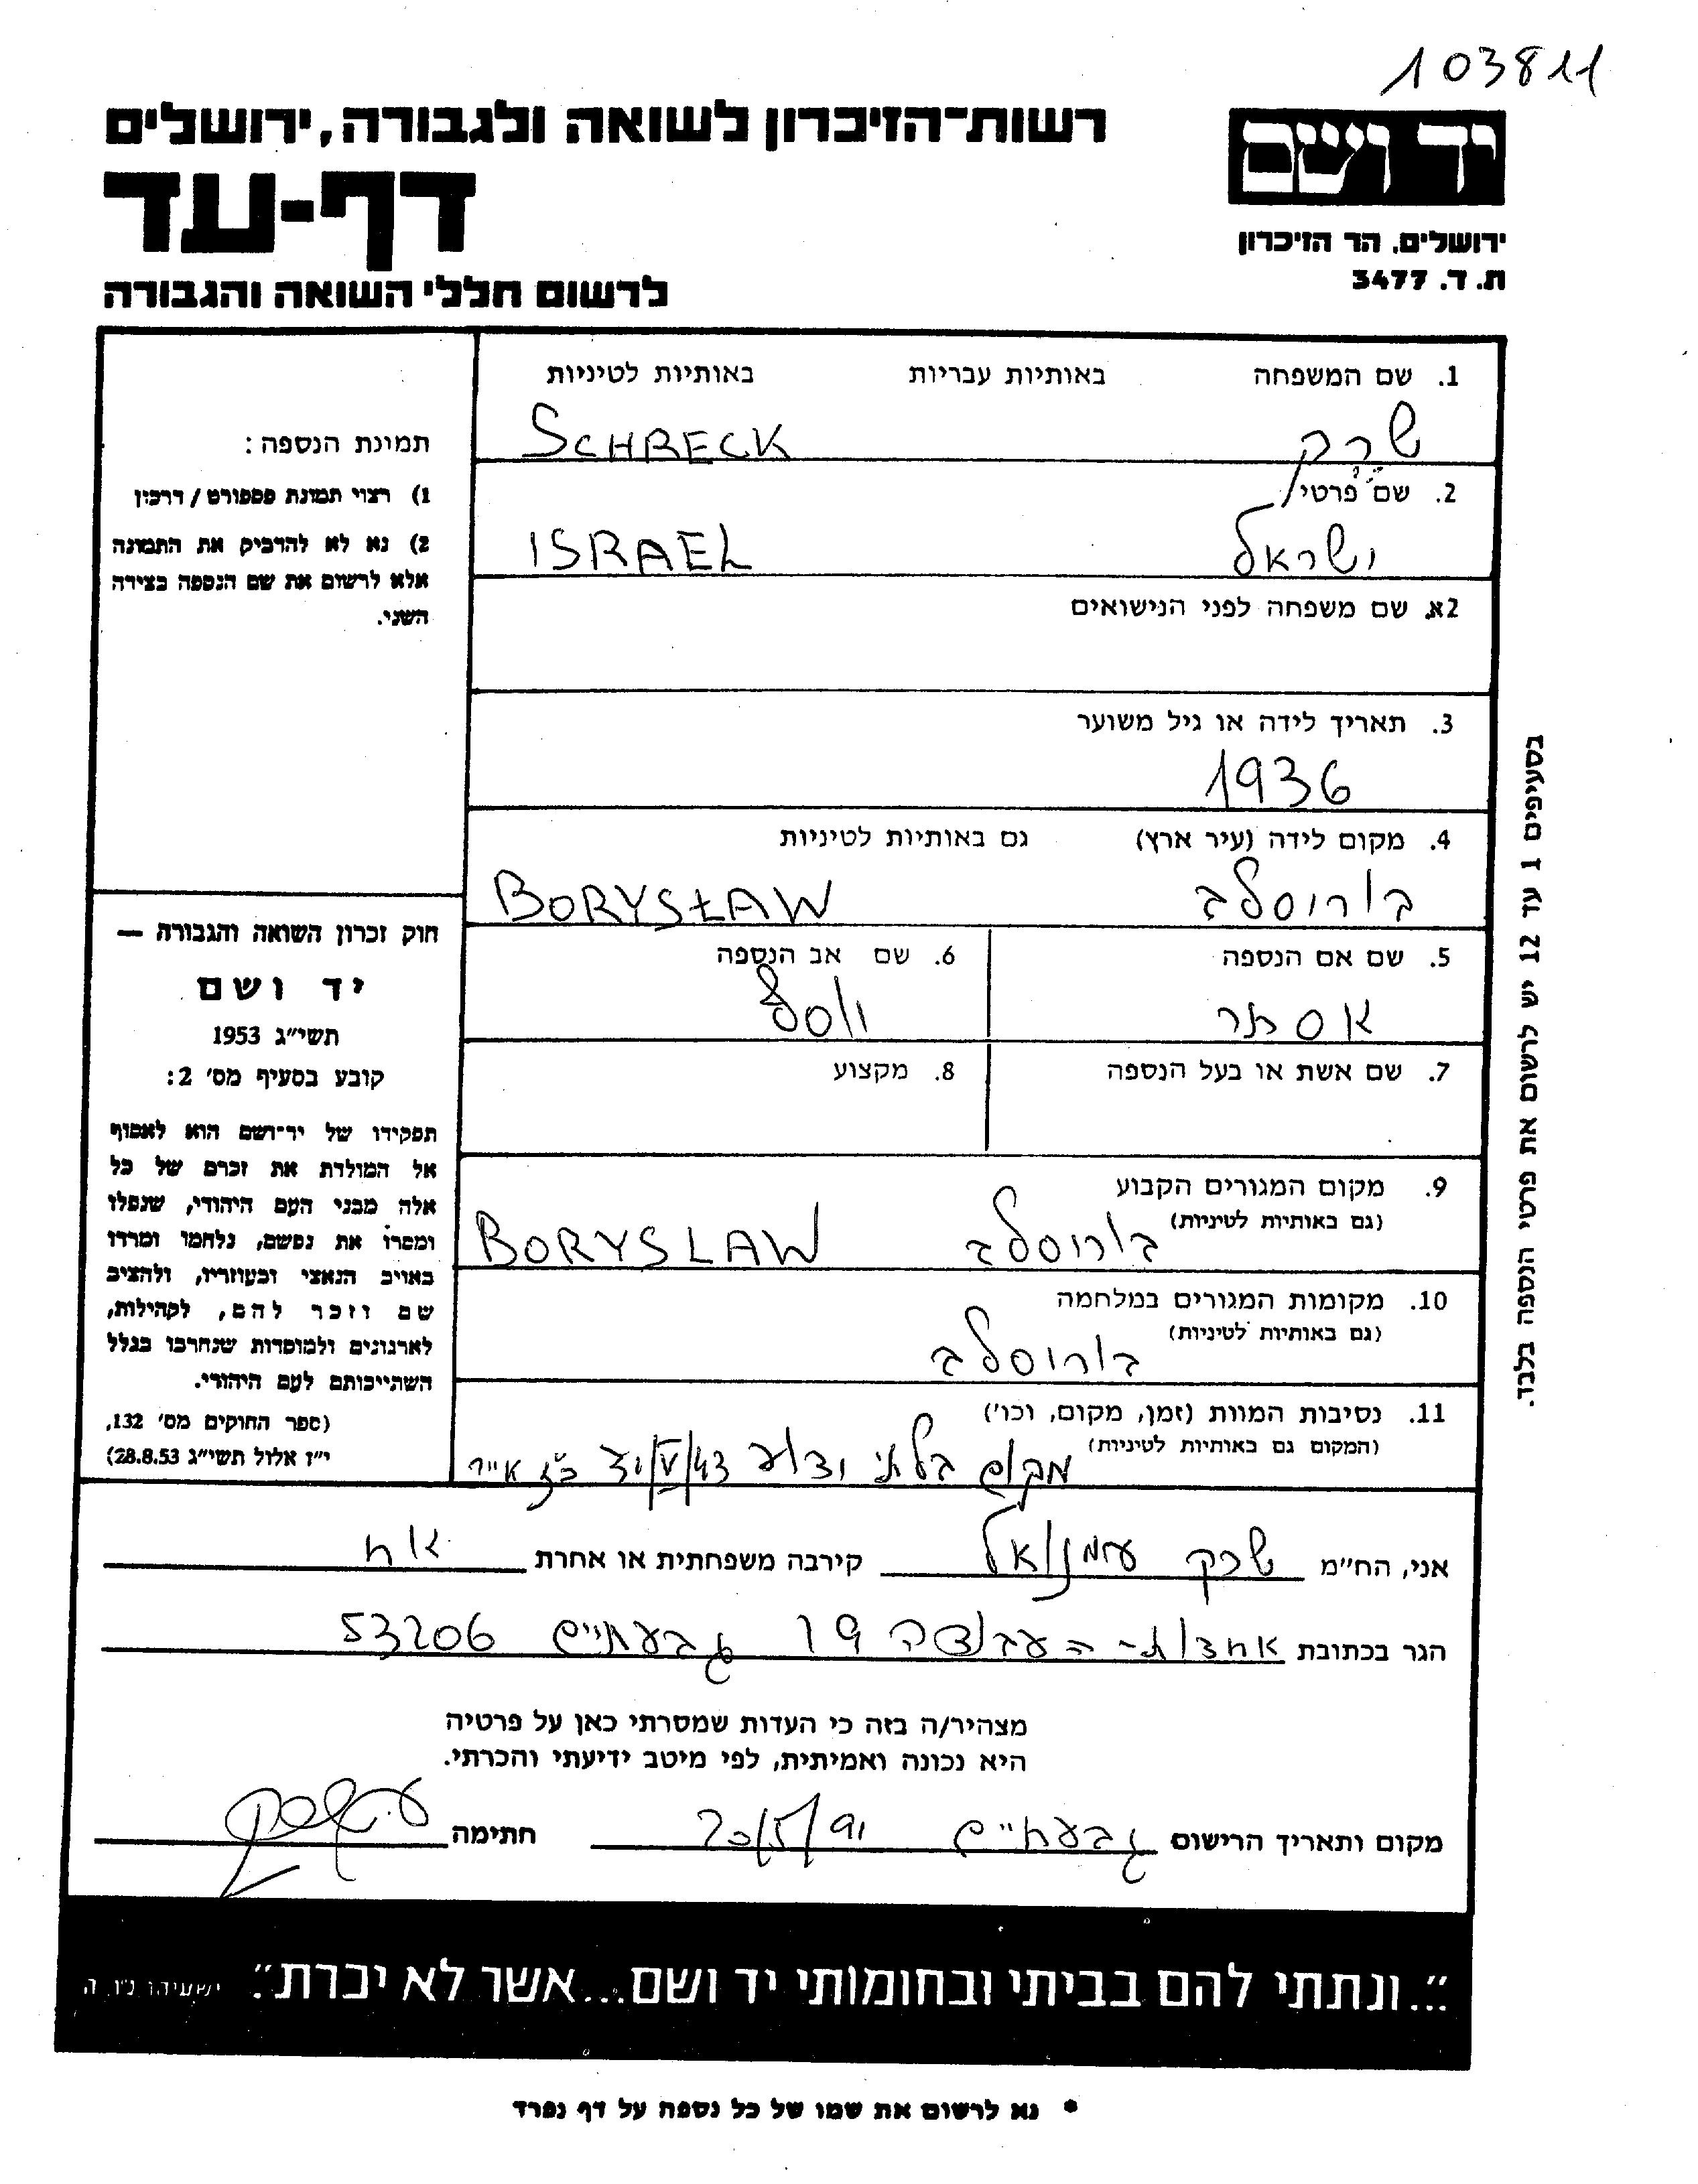 103811
יד ושם
רשות־הזיכרון לשואה ולגבורה, ירושלים
דף-עד
ירושלים, הר הזיכרון
ת. ד. 3477
לרשום חללי השואה והגבורה
1. שם המשפחה באותיות עבריות באותיות לטיניות
שרק SCHRECK
2. שם פרטי
ישראל ISRAEL
2א. שם משפחה לפני הנישואים
3. תאריך לידה או גיל משוער
1936
4. מקום לידה (עיר ארץ) גם באותיות לטיניות
בוריסלב BORYSŁAW
5. שם אם הנספה 6. שם אב הנספה
אסתר יוסף
7. שם אשת או בעל הנספה 8. מקצוע
9. מקום המגורים הקבוע
(גם באותיות לטיניות)
בוריסלב BORYSLAW
10. מקומות המגורים במלחמה
(גם באותיות לטיניות)
בוריסלב
11. נסיבות המוות (זמן, מקום, וכו')
(המקום גם באותיות לטיניות)
מקום בלתי ידוע כ"ז אייר
תמונת הנספה:
1) רצוי תמונת פספורט / דרכון
2) נא לא להדביק את התמונה
אלא לרשום את שם הנספה בצידה
השני.
חוק זכרון השואה והגבורה —
יד ושם
תשי"ג 1953
קובע בסעיף מס' 2:
תפקידו של יד־ושם הוא לאסוף
אל המולדת את זכרם של כל
אלה מבני העם היהודי, שנפלו
ומסרו את נפשם, נלחמו ומרדו
באויב הנאצי ובעוזריו, ולהציב
שם וזכר להם, לקהילות,
לארגונים ולמוסדות שנחרבו בגלל
השתייכותם לעם היהודי.
(ספר החוקים מס' 132,
י"ז אלול תשי"ג 28.8.53)
בסעיפים 1 עד 12 יש לרשום את פרטי הנספה בלבד.
אני, הח"מ שרק עמנואל קירבה משפחתית או אחרת אח
הגר בכתובת אחדות-העבודה 19 גבעתיים 53206
מצהיר/ה בזה כי העדות שמסרתי כאן על פרטיה
היא נכונה ואמיתית, לפי מיטב ידיעתי והכרתי.
מקום ותאריך הרישום גבעתיים 20/5/91 חתימה
"...ונתתי להם בביתי ובחומותי יד ושם...אשר לא יכרת". ישעיהו נ"ו ה
* נא לרשום את שמו של כל נספה על דף נפרד